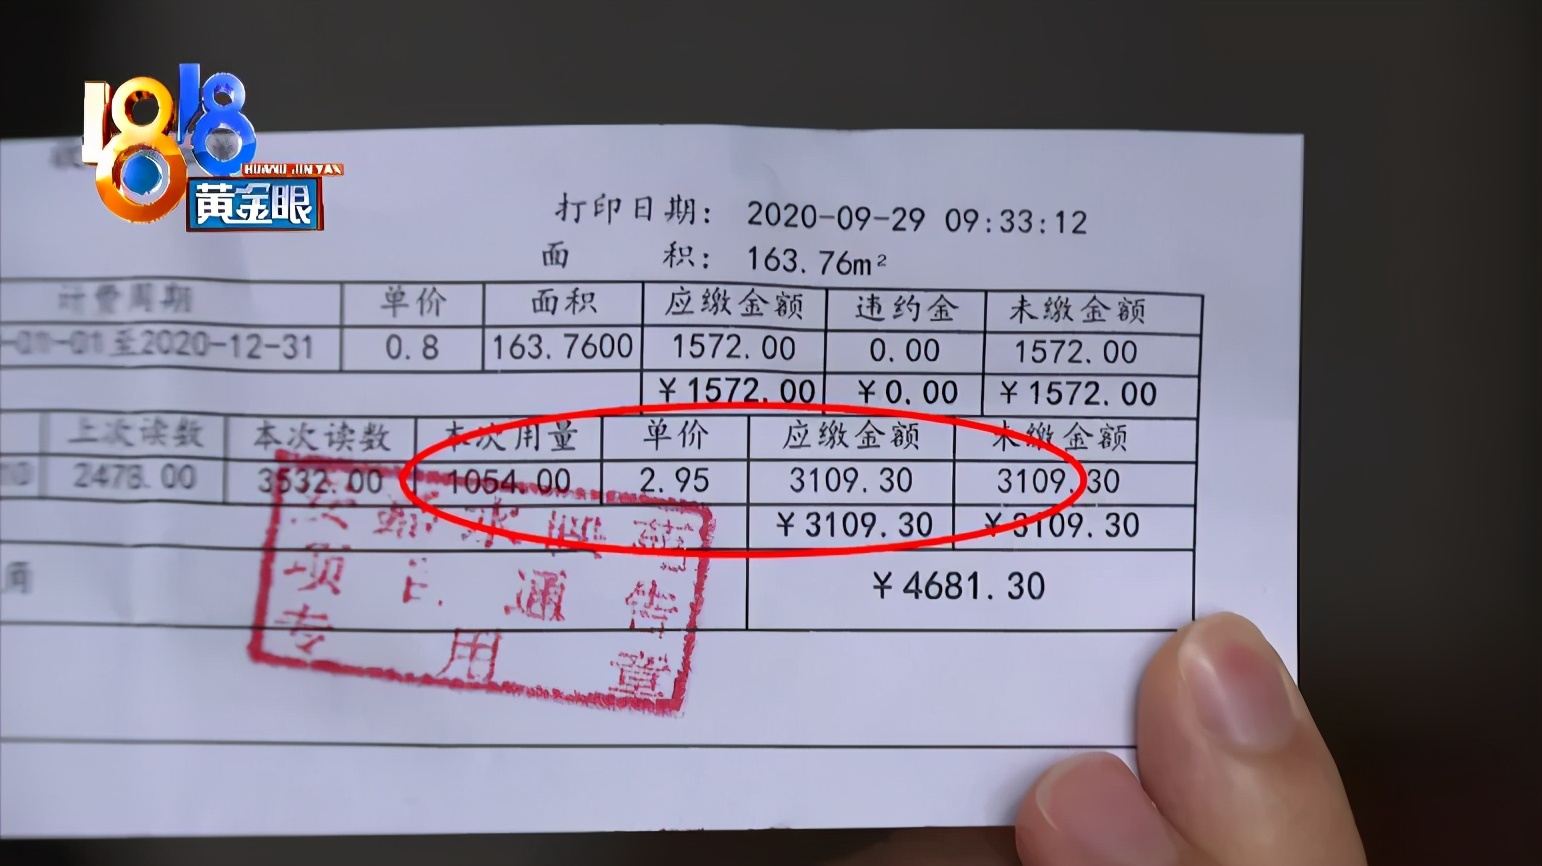 1818
HUANG JIN YAN
黄金眼
打印日期: 2020-09-29 09:33:12
面 积: 163.76m²
计费周期 单价 面积 应缴金额 违约金 未缴金额
-01-01至2020-12-31 0.8 163.7600 1572.00 0.00 1572.00
¥1572.00 ¥0.00 ¥1572.00
上次读数 本次读数 本次用量 单价 应缴金额 未缴金额
2478.00 3532.00 1054.00 2.95 3109.30 3109.30
¥3109.30 ¥3109.30
¥4681.30
项 通 告
专 用 章